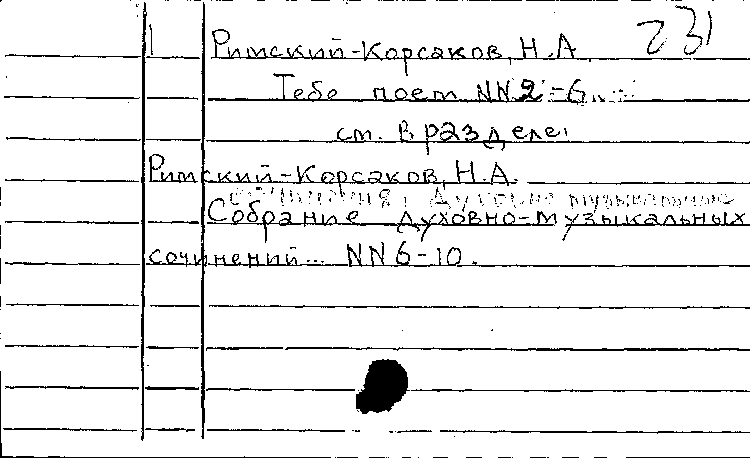 231
Римский-Корсаков, Н.А.
Тебе поем NN 2-6
см. в разделе:
Римский-Корсаков, Н.А.
Собрание духовно-музыкальных
сочинений... NN 6-10.